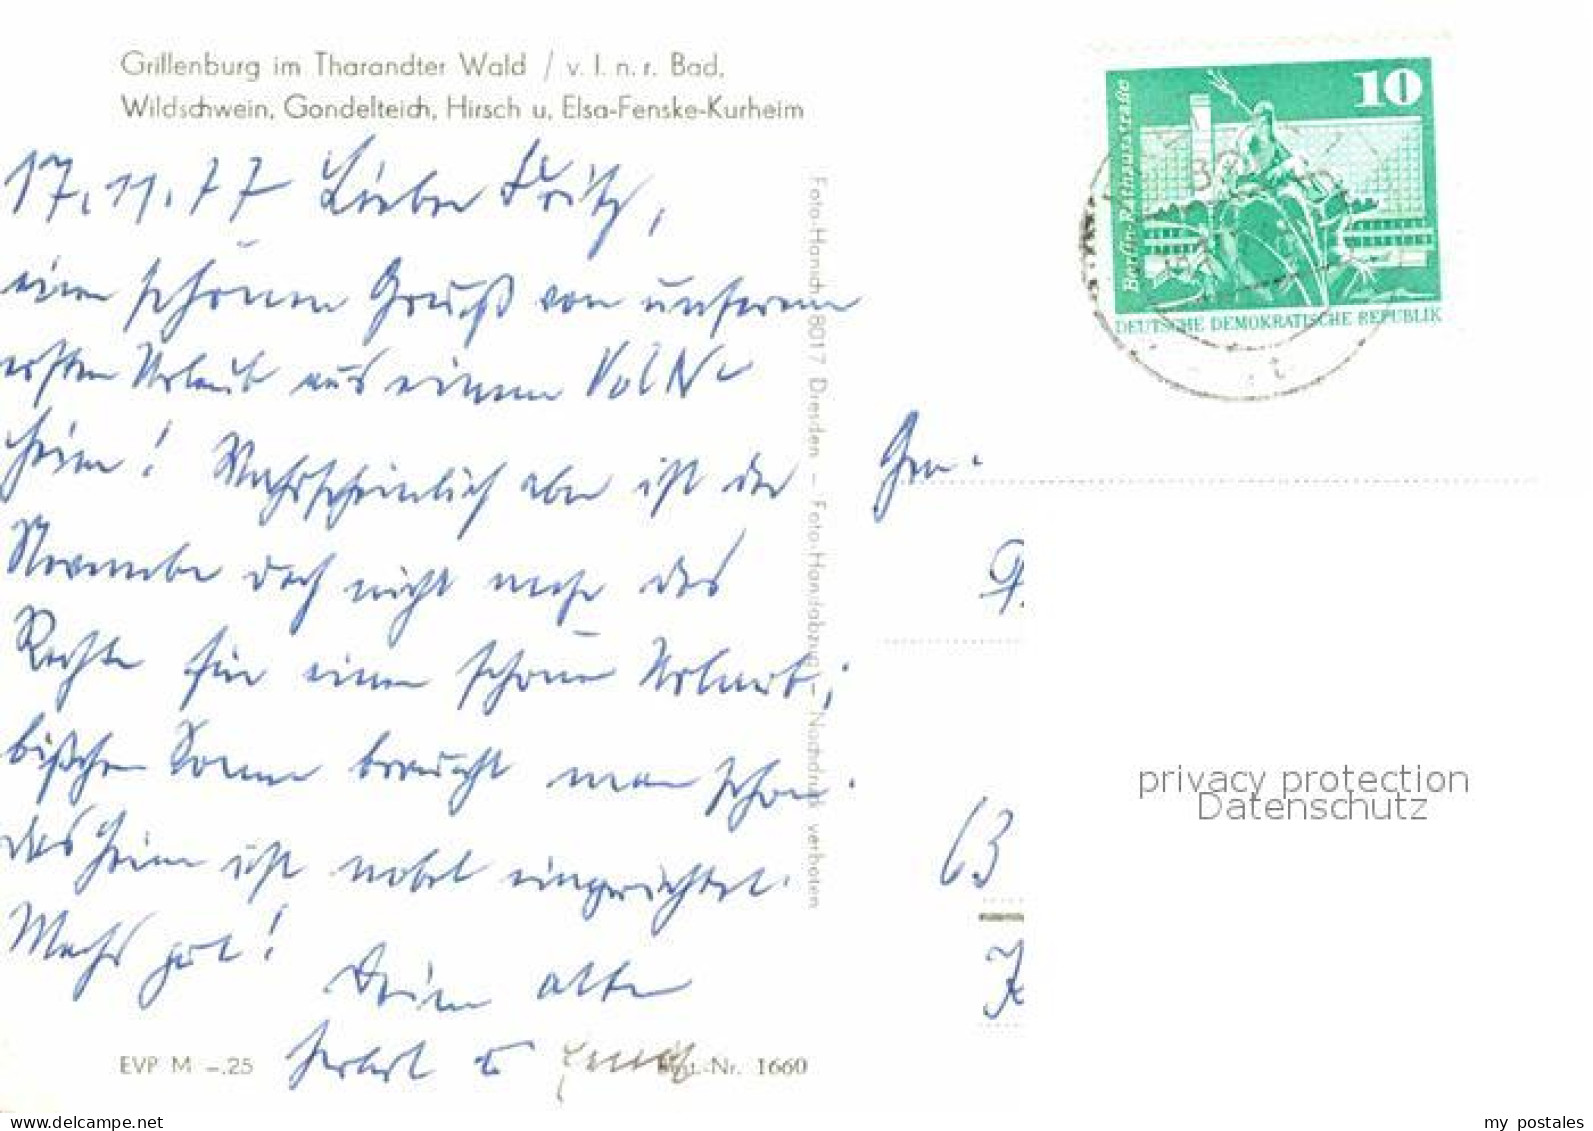 Grillenburg im Tharandter Wald / v. l. n. r. Bad,
Wildschwein, Gondelteich, Hirsch u. Elsa-Fenske-Kurheim
17.11.77 Lieber Fritz,
einen schönen Gruß von unserem
ersten Urlaub aus einem
heim! Wahrscheinlich aber ist der
November doch nicht mehr das
Rechte für einen schönen Urlaub;
bißchen Sonne braucht man schon.
das Heim ist nobel eingerichtet.
Machs gut!
Dein alter
Herbert u
EVP M –.25
Best.-Nr. 1660
Foto-Hanich, 8017 Dresden – Foto-Handabzug – Nachdruck verboten
10
Berlin-Rathausstraße
DEUTSCHE DEMOKRATISCHE REPUBLIK
63
privacy protection
Datenschutz
my postales